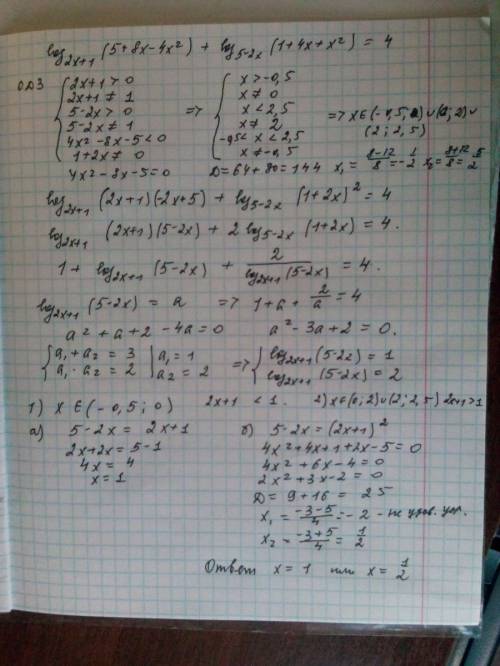 log₂ₓ₊₁ (5+8x-4x²) + log₅₋₂ₓ (1+4x+x²) = 4
ОДЗ { 2x+1 > 0 => { x > -0,5
2x+1 ≠ 1 x ≠ 0
5-2x > 0 x < 2,5 => x∈(-0,5; 0)∪(0; 2)∪
5-2x ≠ 1 x ≠ 2 (2; 2,5)
4x²-8x-5<0 -0,5 < x < 2,5
1+2x ≠ 0 x ≠ -0,5
4x²-8x-5=0 D=64+80=144 x₁ = (8-12)/8 = -1/2 x₂ = (8+12)/8 = 5/2
log₂ₓ₊₁ (2x+1)(-2x+5) + log₅₋₂ₓ (1+2x)² = 4
log₂ₓ₊₁ (2x+1)(5-2x) + 2 log₅₋₂ₓ (1+2x) = 4.
1 + log₂ₓ₊₁ (5-2x) + 2/(log₂ₓ₊₁ (5-2x)) = 4.
log₂ₓ₊₁ (5-2x) = a => 1+a+ 2/a = 4
a²+a+2-4a=0 a²-3a+2=0.
{ a₁+a₂ = 3 | a₁=1 => { log₂ₓ₊₁ (5-2x) = 1
a₁·a₂ = 2 | a₂=2 log₂ₓ₊₁ (5-2x) = 2
1) x∈(-0,5; 0) 2x+1 < 1. 2) x∈(0; 2)∪(2; 2,5) 2x+1>1
а) 5-2x = 2x+1 б) 5-2x = (2x+1)²
2x+2x = 5-1 4x²+4x+1+2x-5=0
4x = 4 4x²+6x-4=0
x = 1 2x²+3x-2=0
D = 9+16 = 25
x₁ = (-3-5)/4 = -2 - не удов. усл.
x₂ = (-3+5)/4 = 1/2
Ответ x = 1 или x = 1/2